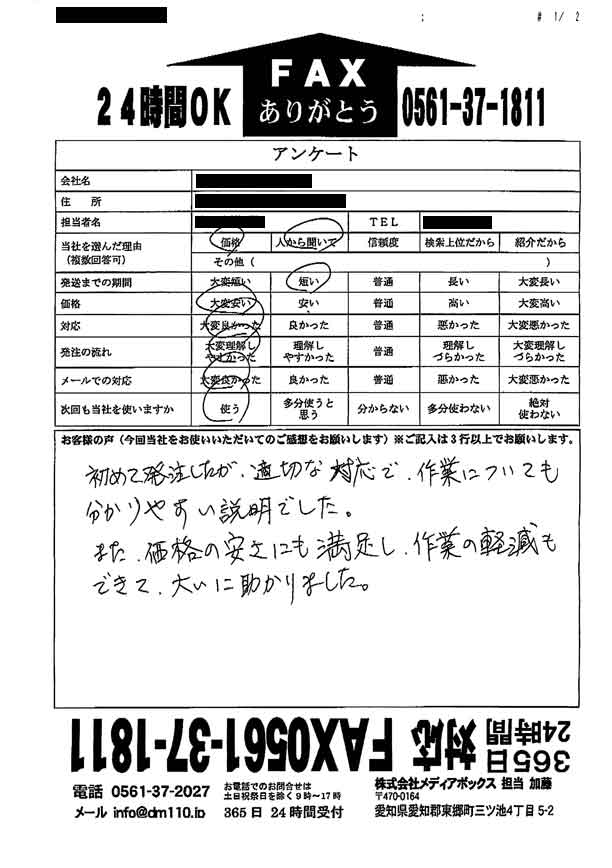 # 1/ 2
FAX
24時間OK ありがとう 0561-37-1811
アンケート
会社名
住 所
担当者名 TEL
当社を選んだ理由 (複数回答可) 価格 人から聞いて 信頼度 検索上位だから 紹介だから
その他 ( )
発送までの期間 大変短い 短い 普通 長い 大変長い
価格 大変安い 安い 普通 高い 大変高い
対応 大変良かった 良かった 普通 悪かった 大変悪かった
発注の流れ 大変理解しやすかった 理解しやすかった 普通 理解しづらかった 大変理解しづらかった
メールでの対応 大変良かった 良かった 普通 悪かった 大変悪かった
次回も当社を使いますか 使う 多分使うと思う 分からない 多分使わない 絶対使わない
お客様の声(今回当社をお使いいただいてのご感想をお願いします)※ご記入は3行以上でお願いします。
初めて発注したが、適切な対応で、作業についても
分かりやすい説明でした。
また、価格の安さにも満足し、作業の軽減も
できて、大いに助かりました。
365日24時間対応 FAX0561-37-1811
電話 0561-37-2027 お電話でのお問合せは土日祝祭日を除く9時～17時
メール info@dm110.jp 365日 24時間受付
株式会社メディアボックス 担当 加藤
〒470-0164
愛知県愛知郡東郷町三ツ池4丁目 5-2